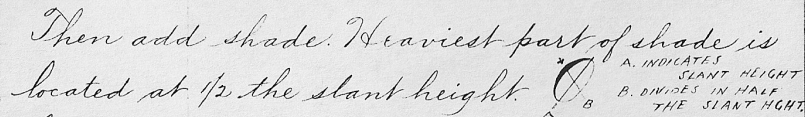 Then add shade. Heaviest part of shade is
located at 1/2 the slant height.
A. INDICATES
SLANT HEIGHT
B. DIVIDES IN HALF
THE SLANT HGHT.
B